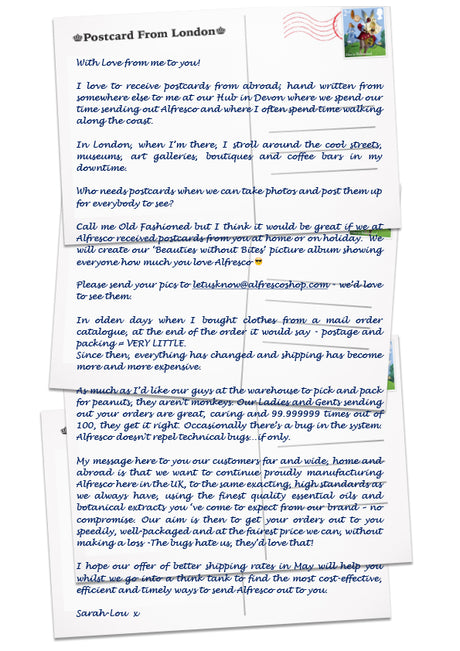 ♚Postcard From London♚
With Love from me to you!
I love to receive postcards from abroad; hand written from
somewhere else to me at our Hub in Devon where we spend our
time sending out Alfresco and where I often spend time walking
along the coast.
In London, when I'm there, I stroll around the cool streets,
museums, art galleries, boutiques and coffee bars in my
downtime.
Who needs postcards when we can take photos and post them up
for everybody to see?
Call me Old Fashioned but I think it would be great if we at
Alfresco received postcards from you at home or on holiday. We
will create our 'Beauties without Bites' picture album showing
everyone how much you love Alfresco 😎
Please send your pics to letusknow@alfrescoshop.com - we'd love
to see them.
In olden days when I bought clothes from a mail order
catalogue, at the end of the order it would say - postage and
packing = VERY LITTLE.
Since then, everything has changed and shipping has become
more and more expensive.
As much as I'd like our guys at the warehouse to pick and pack
for peanuts, they aren't monkeys. Our Ladies and Gents sending
out your orders are great, caring and 99.999999 times out of
100, they get it right. Occasionally there's a bug in the system.
Alfresco doesn't repel technical bugs...if only.
My message here to you our customers far and wide, home and
abroad is that we want to continue proudly manufacturing
Alfresco here in the UK, to the same exacting, high standards as
we always have, using the finest quality essential oils and
botanical extracts you 've come to expect from our brand - no
compromise. Our aim is then to get your orders out to you
speedily, well-packaged and at the fairest price we can, without
making a loss -The bugs hate us, they'd love that!
I hope our offer of better shipping rates in May will help you
whilst we go into a think tank to find the most cost-effective,
efficient and timely ways to send Alfresco out to you.
Sarah-Lou x